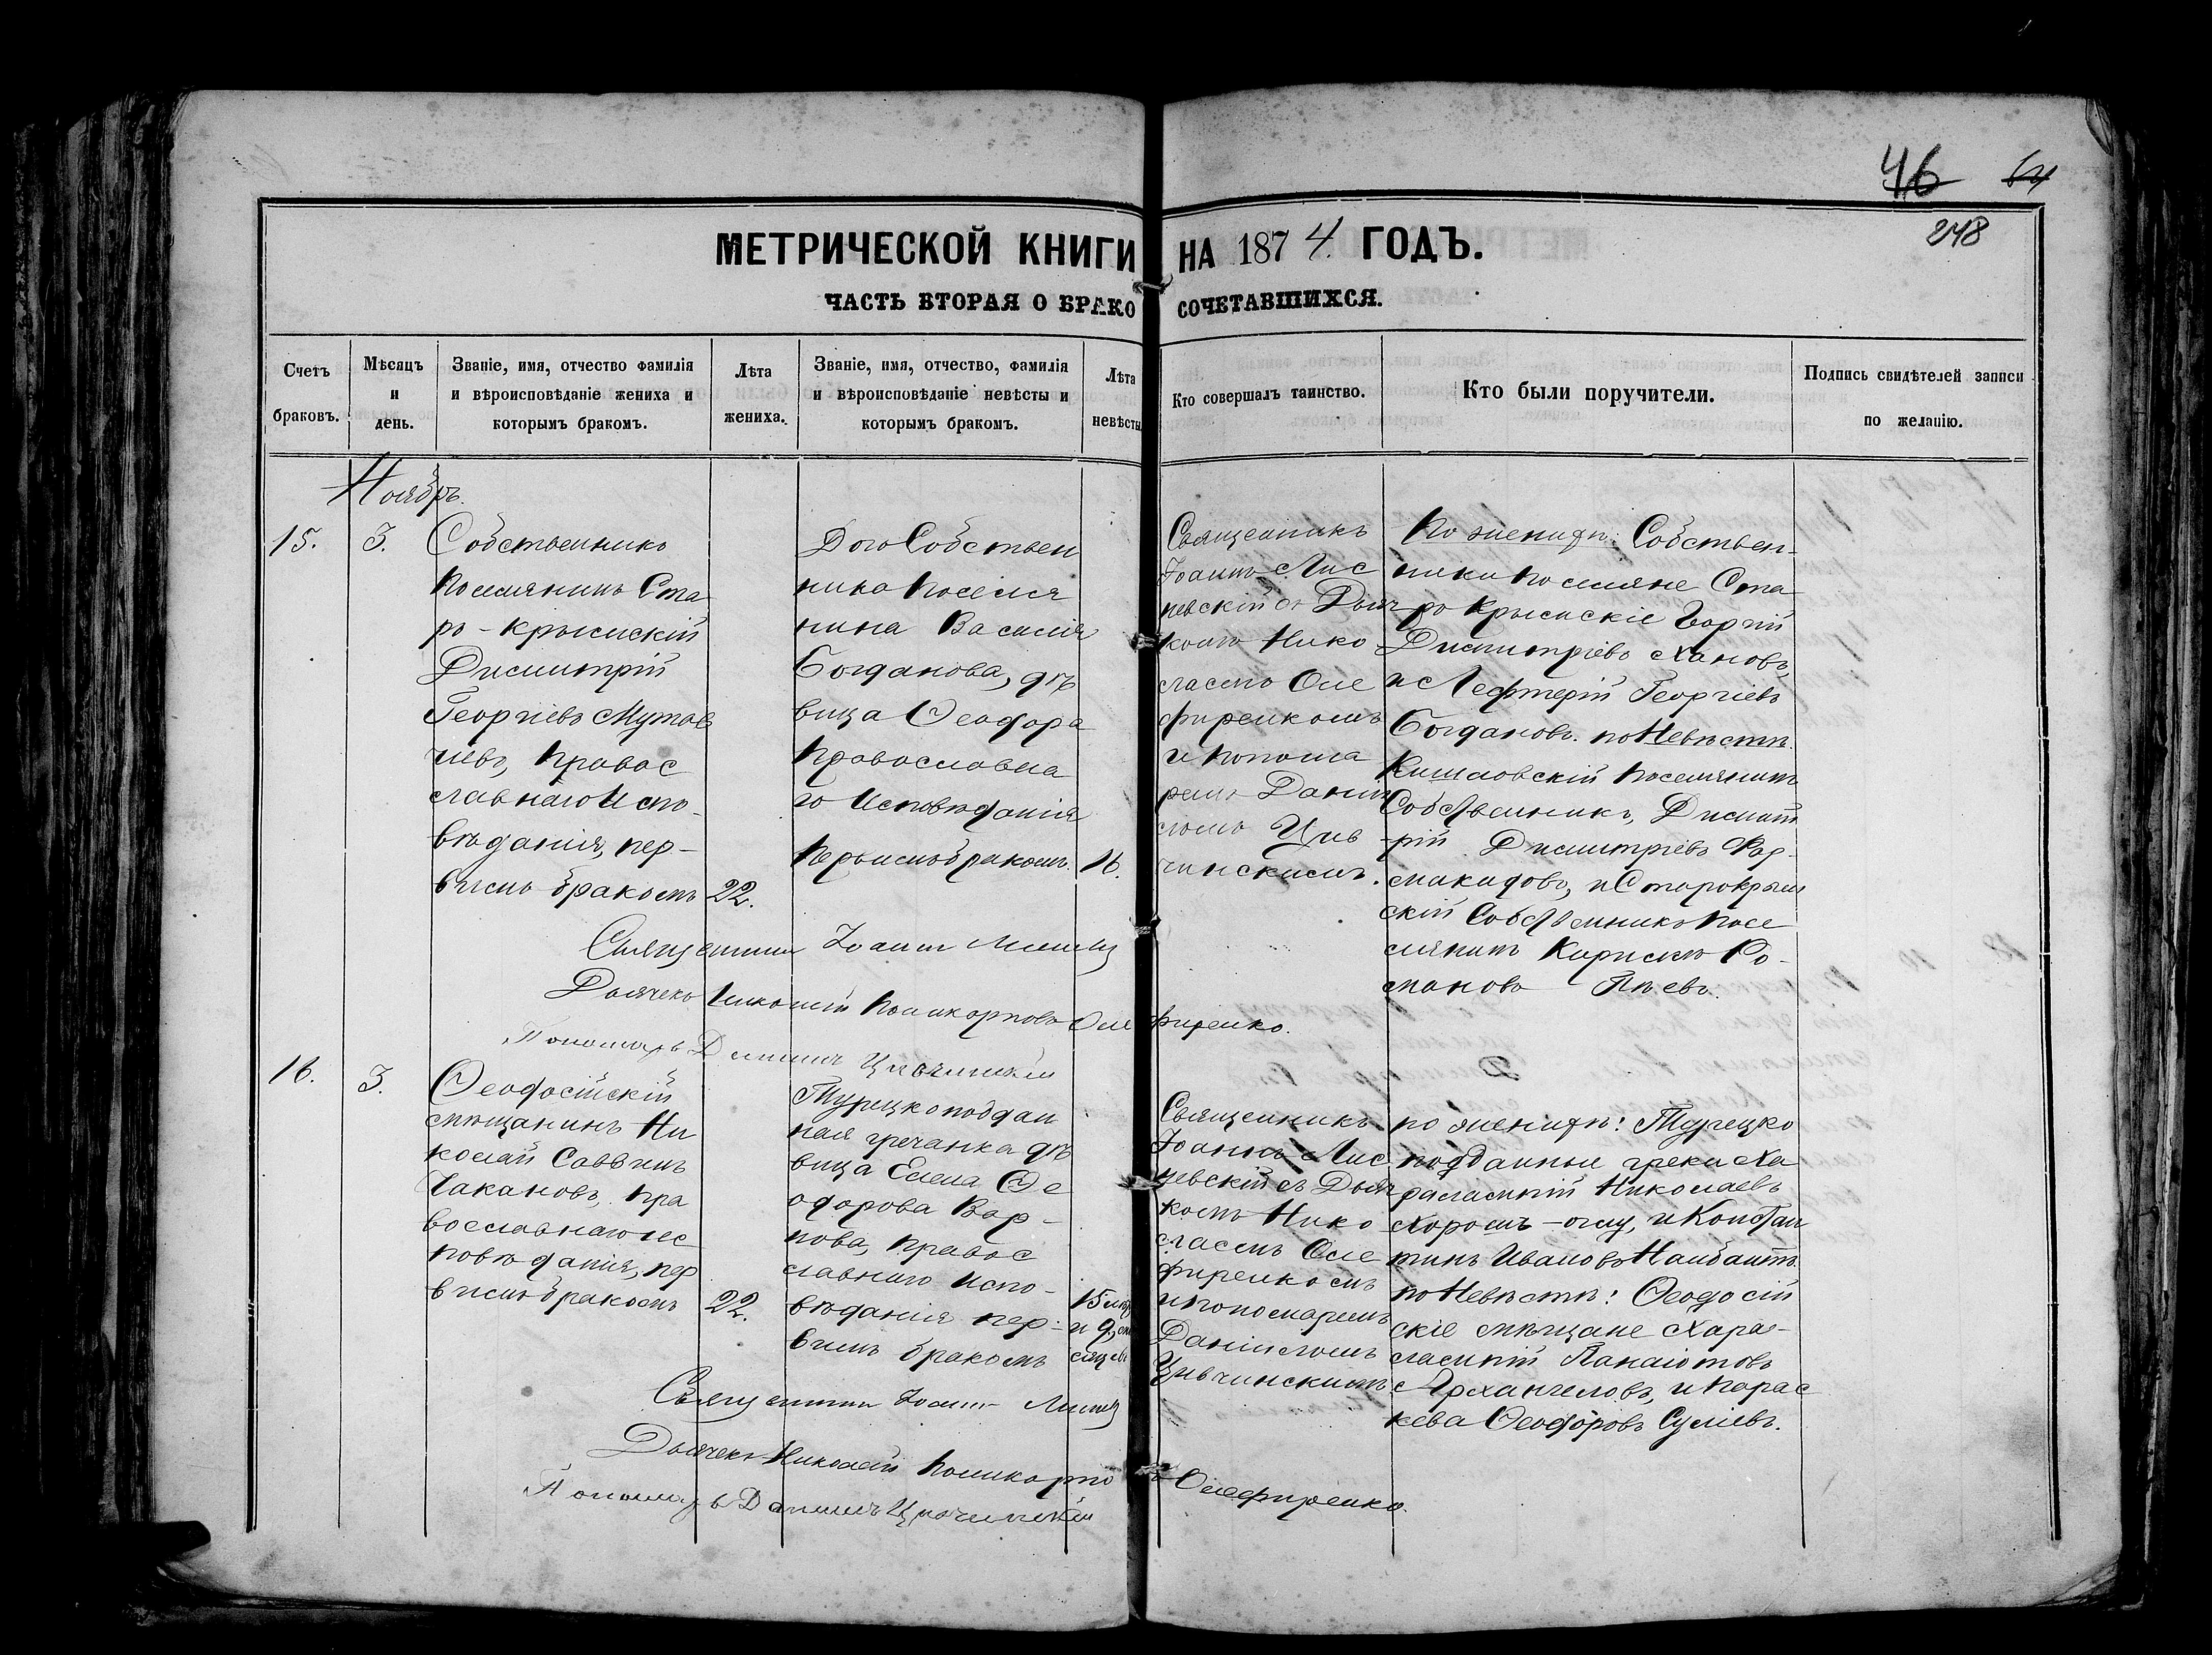 46 64
248
МЕТРИЧЕСКОЙ КНИГИ НА 1874 ГОДЪ.
ЧАСТЬ ВТОРАЯ О БРАКОСОЧЕТАВШИХСЯ.
Счетъ
браковъ.
Мѣсяцъ
и
день.
Званіе, имя, отчество фамилія
и вѣроисповѣданіе жениха и
которымъ бракомъ.
Лѣта
жениха.
Званіе, имя, отчество, фамилія
и вѣроисповѣданіе невѣсты и
которымъ бракомъ.
Лѣта
невѣсты
Кто совершалъ таинство.
Кто были поручители.
Подпись свидѣтелей записи
по желанію.
Ноябрь.
15.
3.
Собственникъ
Поселянинъ Ста
ро-крымскій
Димитрій
Георгіевъ Мутав
чіевъ, Правос
лавнаго Испо-
вѣданія, пер-
вымъ бракомъ
22.
Дого Собствен
ника Поселя
нина Василія
Богданова, дѣ
вица Ѳеодора
Православна
го Исповѣданія
Первымъ бракомъ.
16.
Священникъ
Іоаннъ Лис
невскій съ Дьяч
комъ Нико
лаемъ Оле
фиренкомъ
и Понома
ремъ Дани
ломъ Цыв
чинскимъ.
По женихѣ: Собствен-
ники Поселяне Ста
ро Крымскіе Георгій
Димитріевъ Хановъ,
и Лефтерій Георгіевъ
Богдановъ. по Невѣстѣ.
Поселянинъ
Собственникъ, Димит
рій Димитріевъ
и Старокрым
скій Собственникъ Посе
лянинъ Ро-
мановъ
Священникъ Іоаннъ
Дьячекъ Николай Поликарповъ Олефиренко.
Пономарь Даніилъ Цывчинскій
16.
3.
Ѳеодосійскій
мѣщанинъ Ни
колай Саввинъ
Чакановъ, Пра
вославнаго ис
повѣданія, пер
вымъ бракомъ
22.
Турецкоподдан
ная гречанка дѣ
вица Елена Ѳе
одорова Вар-
нова, Правос
лавнаго Испо-
вѣданія пер-
вымъ бракомъ
15 лѣтъ
и 9 мѣ
сяцевъ
Священникъ
Іоаннъ Лис
невскій съ Дьяч
комъ Нико
лаемъ Оле
фиренкомъ
и пономаремъ
Даніиломъ
Цывчинскимъ
по женихѣ: Турецко
подданные греки Ха
ралампій Николаевъ
Хоромъ-оглу, и Констан
тинъ Ивановъ
по Невѣстѣ: Ѳеодосій
скіе мѣщане Хара-
лампій Панаіотовъ
Архангеловъ, и Парас
кева Ѳеодоровъ Суліевъ.
Священникъ Іоаннъ
Дьячекъ Николай Поликарповъ Олефиренко.
Пономарь Даніилъ Цывчинскій